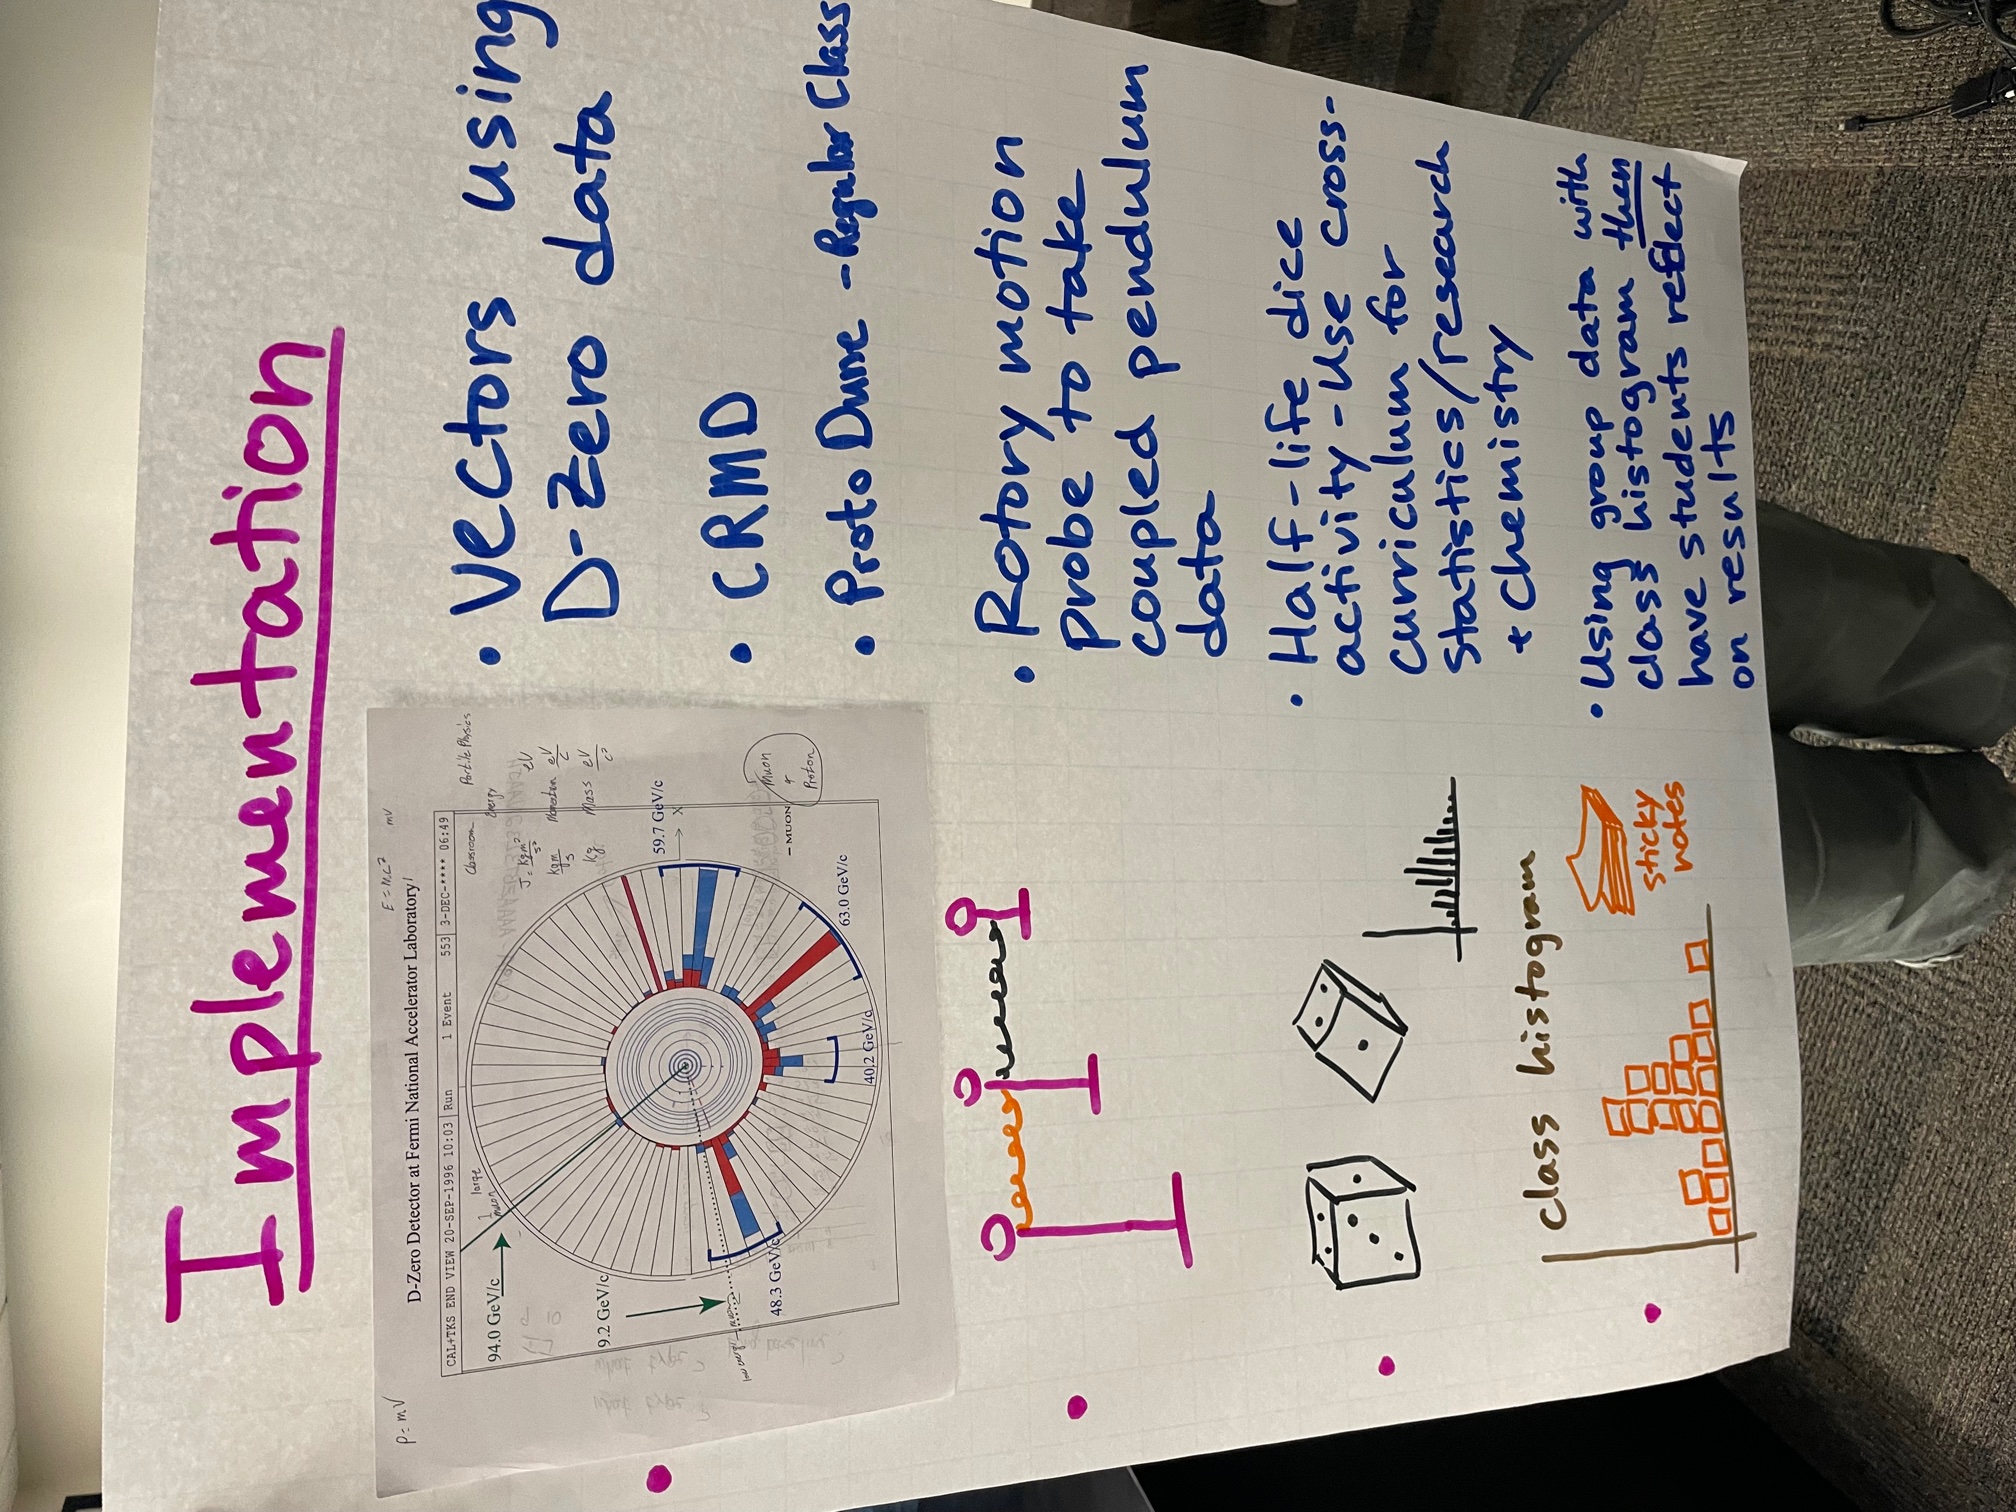 Implementation
P = mV
E = mc²
mv
D-Zero Detector at Fermi National Accelerator Laboratory
CAL+TKS END VIEW 20-SEP-1996 10:03 Run 1 Event 553 3-DEC-**** 06:49
Classroom
Particle Physics
Energy
J = kgm²/s²
eV
kgm/s
Momentum eV/c
kg
Mass eV/c²
large
muon
94.0 GeV/c
59.7 GeV/c
X
9.2 GeV/c
MUON
Muon
Proton
low energy muon
48.3 GeV/c
63.0 GeV/c
40.2 GeV/c
• Vectors using
D-Zero data
• CRMD
• Proto Dune - Regular Class
• Rotory motion
probe to take
coupled pendulum
data
• Half-life dice
activity - Use cross-
curriculum for
statistics/research
+ chemistry
Class histogram
sticky
notes
• Using group data with
class histogram then
have students reflect
on results